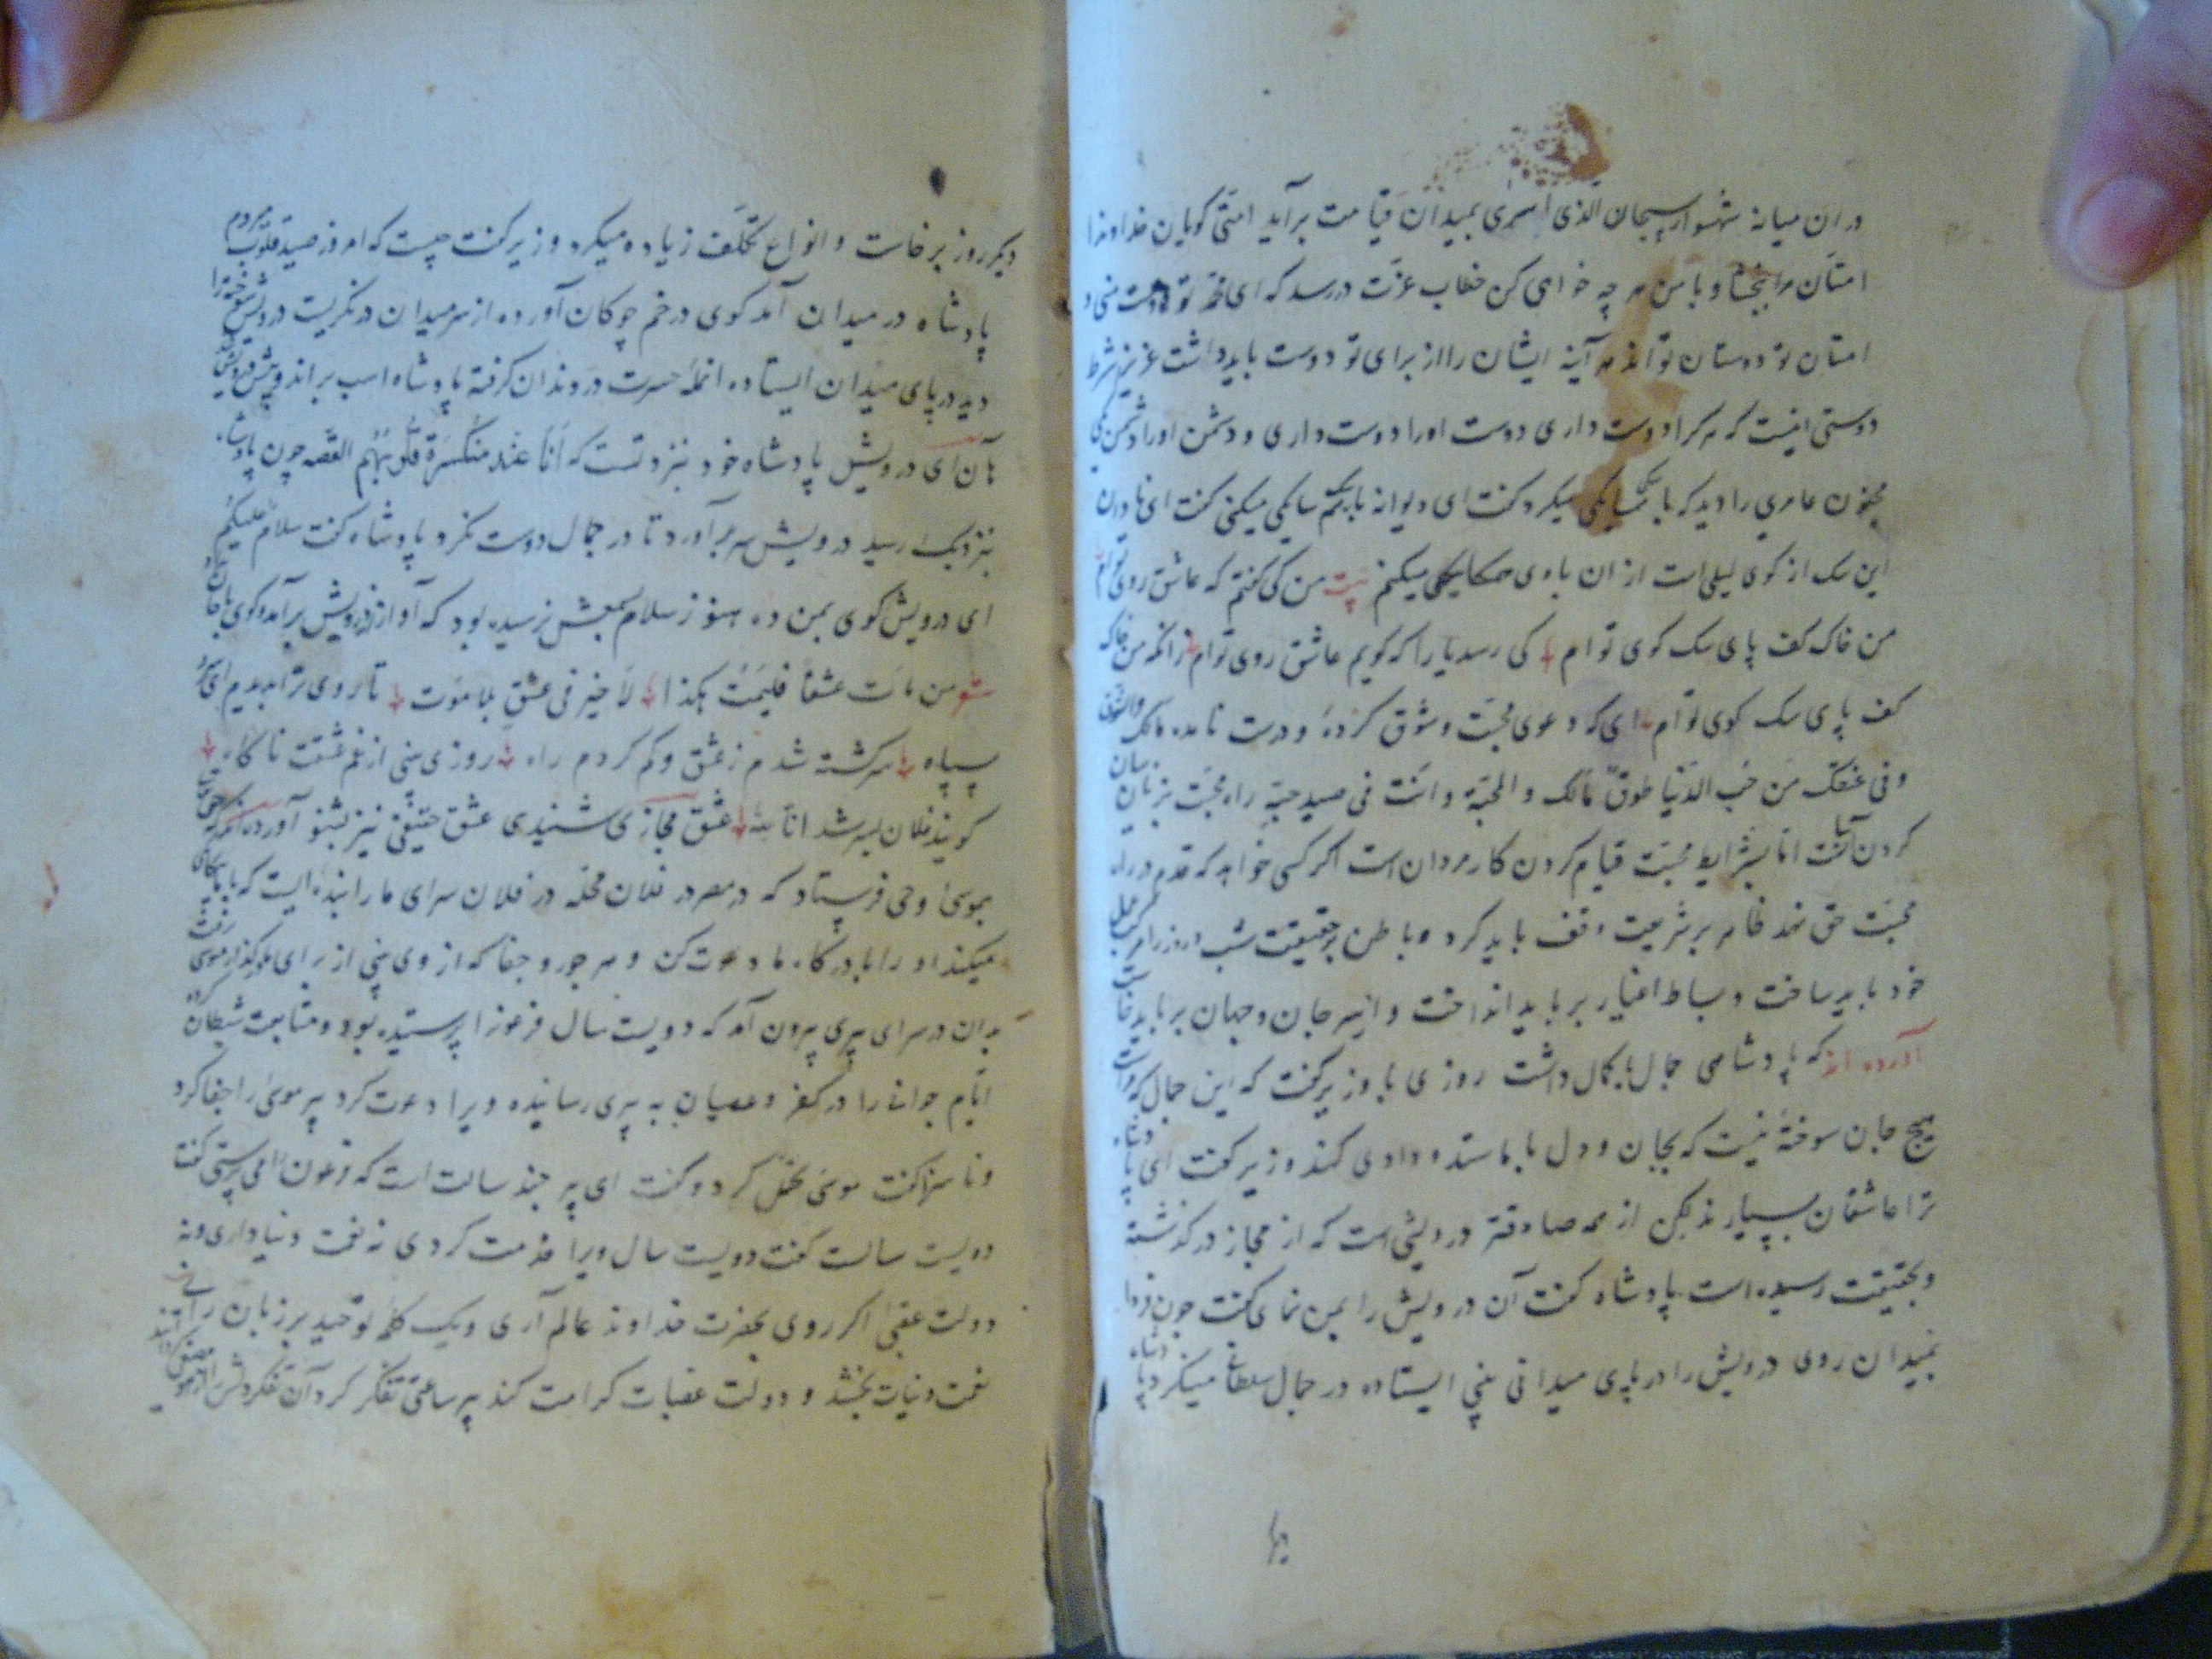 دران میانه شهسوار سبحان الذی اسری بمیدان قیامت برآید امتی گویان خداوندا
امتان مرا ببخشا و با من هر چه خواهی کن خطاب عزت دررسد که ای محمد تو دوست منی و
امتان تو دوستان تو اند هر آینه ایشان را از برای تو دوست باید داشت عزیز من شرط
دوستی اینست که هر کرا دوست داری دوست اورا دوست داری و دشمن اورا دشمن
مجنون عامری را دید که با سک میکرد کفت ای دیوانه با میکنی کفت ای نادان
این سک از کوی لیلی است ازان با وی میکنم بیت من کی کفتم که عاشق روی توام
من خاک کف پای سک کوی توام کی رسد یارا که کویم عاشق روی توام زانکه من خاک
کف پای سک کوی توام ای که دعوی محبت و شوق کردهٔ و درست نامده
وفی عنقک من حب الدنیا طوق مالک والمحبة وانت فی صید حبة راه محبت بزبان بیان
کردن آسانست اما بشرایط محبت قیام کردن کار مردان است اکر کسی خواهد که قدم در راه
محبت حق نهد ظاهر بر شریعت وقف باید کرد و باطن بر حقیقت شب و روز را مرکب عمل
خود باید ساخت و بساط اغیار بر باید انداخت و از سر جان و جهان بر باید خاست
آورده اند که پادشاهی جمال با کمال داشت روزی با وزیر کفت که این جمال که مراست
هیچ جان سوختهٔ نیست که بجان و دل با ما ستد و دادی کند وزیر کفت ای پادشاه
ترا عاشقان بسیارند لیکن از همه صادقتر درویشی است که از مجاز درکذشته
و بحقیقت رسیده است پادشاه کفت آن درویش را بمن نمای کفت چون فردا
بمیدان روی درویش را در پای میدان بینی ایستاده در جمال سلطان میکرد پادشاه
دیکر روز برخاست و انواع تکلف زیاده میکرد وزیر کفت چیست که امروز صید قلوب مردم
پادشاه در میدان آمد کوی در خم چوکان آورده از سر میدان درنکریست درویش سوخته را
دید در پای میدان ایستاده انملهٔ حسرت در دندان کرفته پادشاه اسب براند و پیش درویش
هان ای درویش پادشاه خود بنزد تست که انا عند منکسرة قلوبهم القصه چون پادشاه
بنزدیک رسید درویش سر برآورد تا در جمال دوست نکرد پادشاه کفت سلام علیکم
ای درویش کوی بمن ده هنوز سلام بسمعش نرسیده بود که آواز از درویش برآمد کوی با جان
شعر من مات عشقا فلیمت هکذا لا خیر فی عشق بلا موت تا روی ترا بدیدم ای
سپاه سرکشته شدم ز عشق و کم کردم راه روزی بینی از غم عشقت ناکاه
کویند فلان بسر شد انا لله عشق مجازی شنیدی عشق حقیقی نیز بشنو آورده اند که
بموسی وحی فرستاد که در مصر در فلان محله در فلان سرای ما را بندهٔ ایست که با ما
میکند او را با درکاه ما دعوت کن و هر جور و جفا که از وی بینی از برای ما درکذار موسی رفت
بدان در سرای پیری بیرون آمد که دویست سال فرعون را پرستیده بود و متابعت شیطان کرده
ایام جوانی را در کفر و عصیان به پیری رسانیده ویرا دعوت کرد پیر موسی را جفا کرد
و ناسزا کفت موسی تحمل کرد و کفت ای پیر چند سالست که فرعون را می پرستی کفت
دویست سالست کفت دویست سال ویرا خدمت کردی نه نعمت دنیا داری و نه
دولت عقبی اکر روی بحضرت خداوند عالم آری و یک کلمهٔ توحید بر زبان رانی
نعمت دنیات بخشد و دولت عقبات کرامت کند پیر ساعتی تفکر کرد آن تفکر